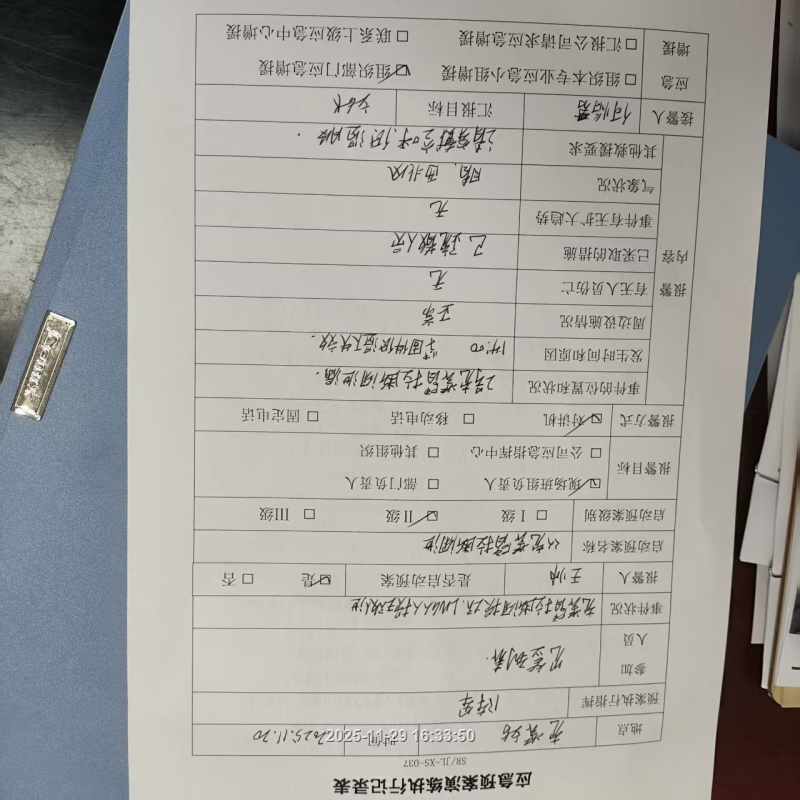 应急预案演练执行记录表
SR/JL-XS-037
地点 充装站 时间 2025.11.20
预案执行指挥
参加人员 见签到表
事件状况 充装臂拉断阀
报警人 王帅 是否启动预案 ☑是 □否
启动预案名称 充装臂拉断阀泄
启动预案级别 □ I级 ☑ II级 □ III级
报警目标 ☑ 现场班组负责人 □ 部门负责人
□ 公司应急指挥中心 □ 其他组织
报警方式 ☑ 对讲机 □ 移动电话 □ 固定电话
报警内容
事件的位置和状况 2号充装臂拉断阀泄漏.
发生时间和原因 14:00 紧固件低温下失效.
周边设施情况 正常
有无人员伤亡 无
已采取的措施 已疏散人员
事件有无扩大趋势 无
气象状况 晴，西北风
其他救援要求
接警人 汇报目标
应急增援 □ 组织本专业应急小组增援 ☑ 组织部门应急增援
□ 汇报公司请求应急增援 □ 联系上级应急中心增援
2025-11-29 16:33:50